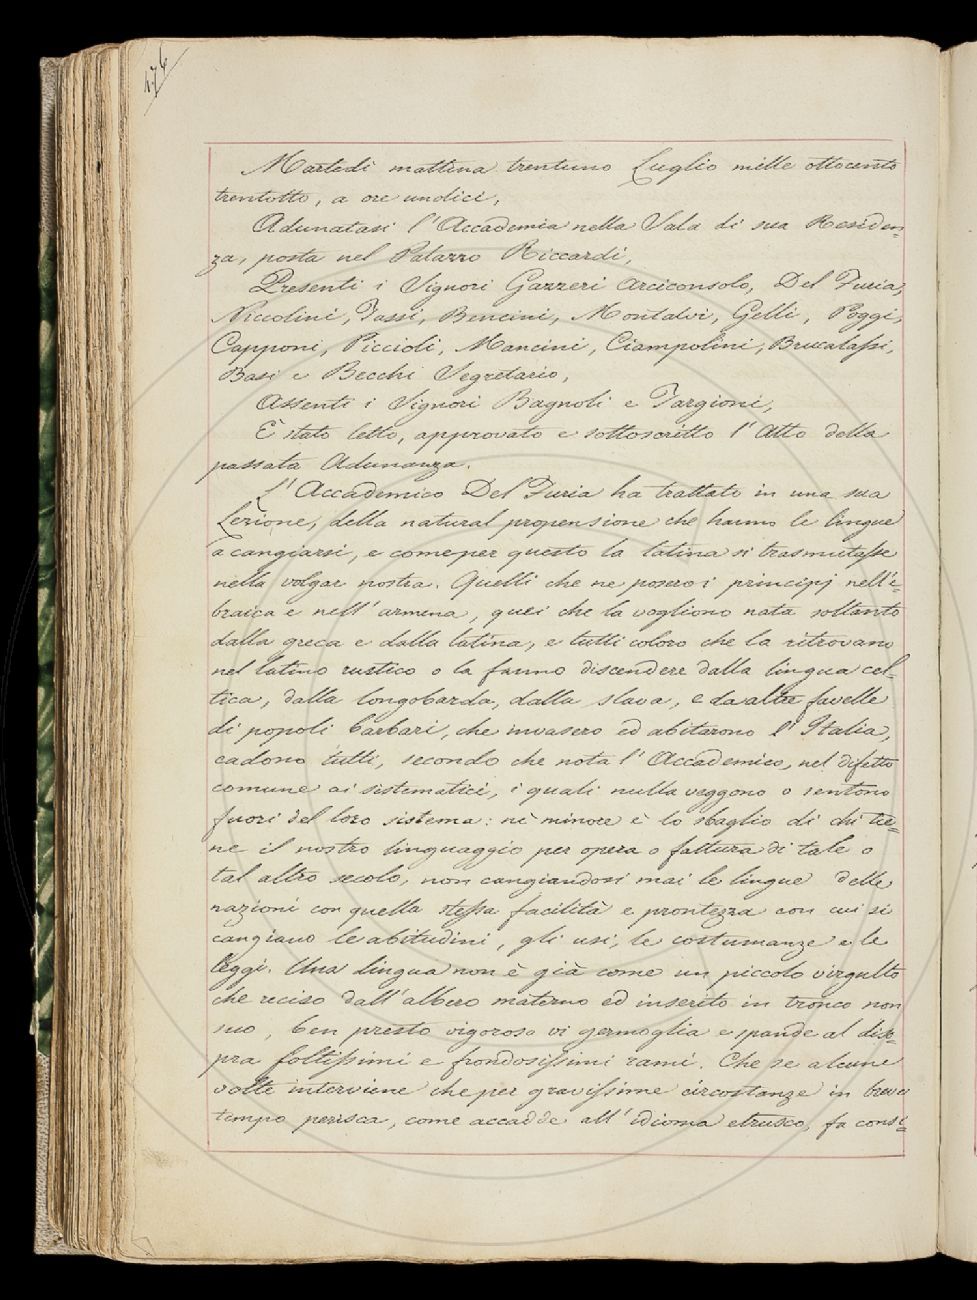 174
Martedi mattina trentuno Luglio mille ottocento
trentotto, a ore undici,
Adunatasi l'Accademia nella Sala di sua Residen=
za, posta nel Palazzo Riccardi,
Presenti i Signori Gazzeri Arciconsolo, Del Furia,
Niccolini, Tassi, Bencini, Montalvi, Gelli, Poggi,
Capponi, Piccioli, Mancini, Ciampolini, Brucalassi,
Basi e Becchi Segretario,
Assenti i Signori Bagnoli e Targioni,
È stato letto, approvato e sottoscritto l'Atto della
passata Adunanza.
L'Accademico Del Furia ha trattato in una sua
Lezione, della natural propensione che hanno le lingue
a cangiarsi, e come per questo la latina si trasmutasse
nella volgar nostra. Quelli che ne posero i principj nell'e=
braica e nell'armena, quei che la vogliono nata soltanto
dalla greca e dalla latina, e tutti coloro che la ritrovano
nel latino rustico o la fanno discendere dalla lingua cel=
tica, dalla longobarda, dalla slava, e da altre favelle
di popoli barbari, che invasero ed abitarono l'Italia,
cadono tutti, secondo che nota l'Accademico, nel difetto
comune ai sistematici, i quali nulla veggono o sentono
fuori del loro sistema: nè minore è lo sbaglio di chi tie=
ne il nostro linguaggio per opera o fattura di tale o
tal altro secolo, non cangiandosi mai le lingue delle
nazioni con quella stessa facilità e prontezza con cui si
cangiano le abitudini, gli usi, le costumanze e le
leggi. Una lingua non è già come un piccolo virgulto
che reciso dall'albero materno ed inserito in tronco non
suo, ben presto vigoroso vi germoglia e spande al diso=
pra foltissimi e frondosissimi rami. Che se alcune
volte interviene che per gravissime circostanze in breve
tempo perisca, come accadde all'idioma etrusco, fa consi=